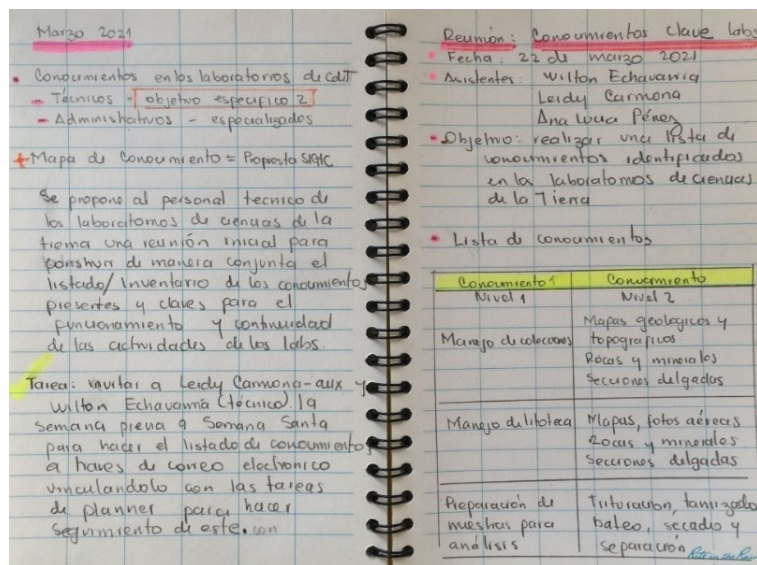 Marzo 2021
• Conocimientos en los laboratorios de CdT
- Técnicos - objetivo especifico 2
- Administrativos - especializados
+ Mapa de Conocimiento = Propuesta SIGIC
Se propone al personal tecnico de
los laboratorios de ciencias de la
tierra una reunión inicial para
construir de manera conjunta el
listado/inventario de los conocimientos
presentes y claves para el
funcionamiento y continuidad
de las actividades de los labs.
Tarea: invitar a Leidy Carmona-aux y
Wilton Echavarria (técnico) la
semana previa a Semana Santa
para hacer el listado de conocimientos
a traves de correo electronico
vinculandolo con las tareas
de planner para hacer
seguimiento de este.
Reunión: Conocimientos clave labs
• Fecha: 22 de marzo 2021
• Asistentes: Wilton Echavarria
Leidy Carmona
Ana Lucia Pérez
• Objetivo: realizar una lista de
conocimientos identificados
en los laboratorios de ciencias
de la Tierra
• Lista de conocimientos
Conocimiento Conocimiento
Nivel 1 Nivel 2
Manejo de colecciones Mapas geologicos y
topograficos
Rocas y minerales
Secciones delgadas
Manejo de litoteca Mapas, fotos aéreas
Rocas y minerales
Secciones delgadas
Preparación de Trituracion, tamizado
muestras para bateo, secado y
análisis separación
Rite in the Rain